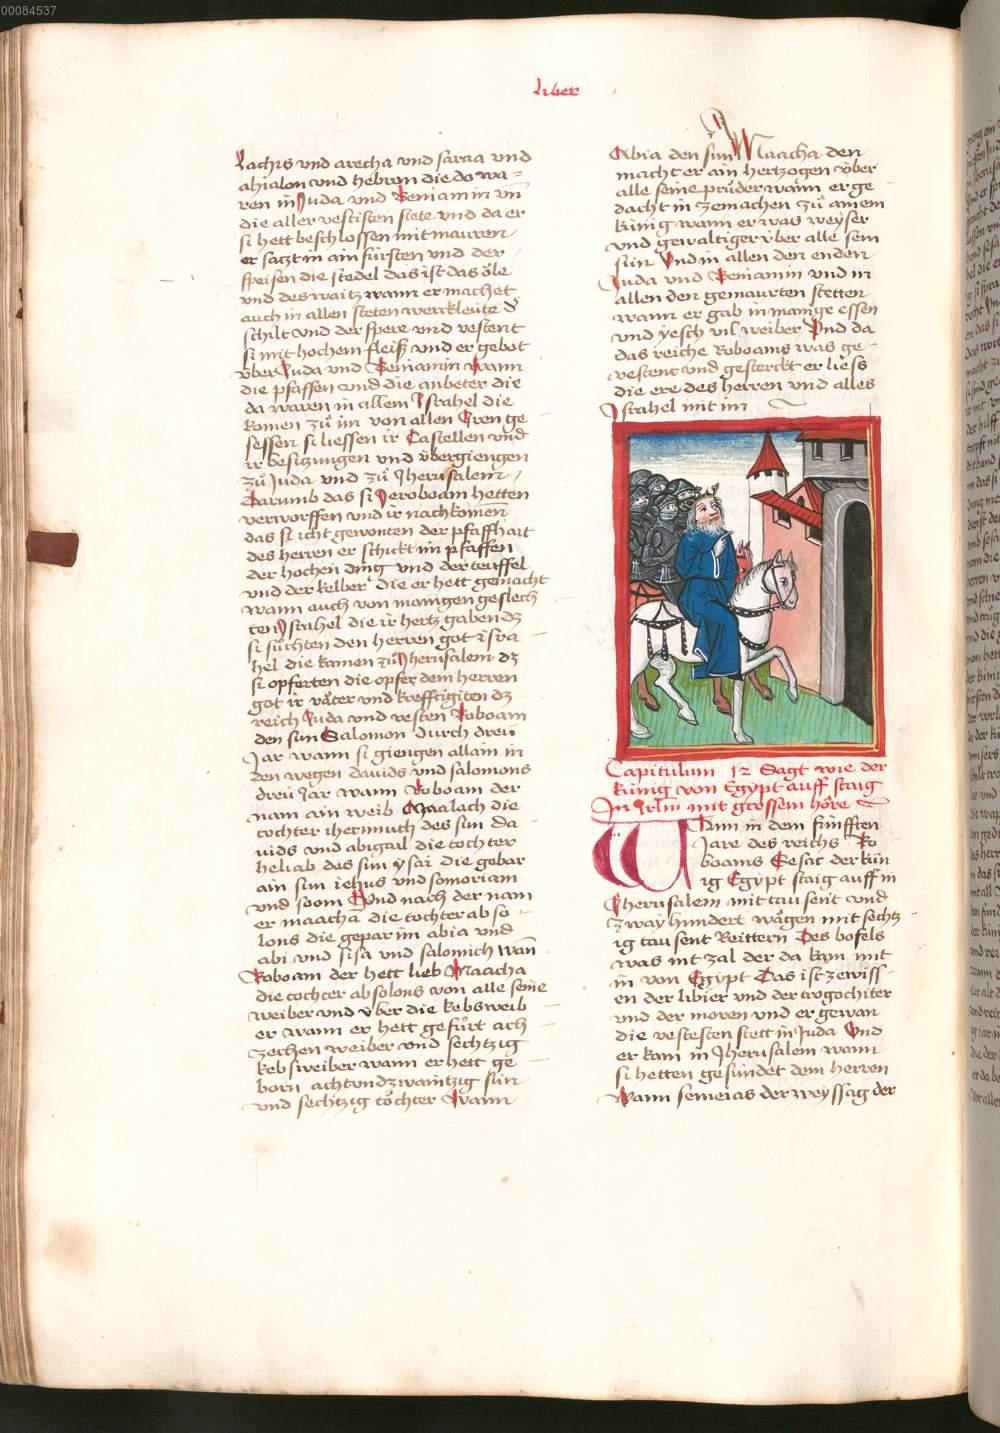 00084537
Liber
Lachis vnd arecha vnd saraa vnd
ahialon vnd hebron die do wa=
ren in Juda vnd Beniamin vn̄
die aller vestisten stete vnd da er
si hett beschlossen mit mauren
er satzt in ain fürsten vnd der
speisen die stedel das ist das öle
vnd des waitz wann er machet
auch in allen steten werckleüte d
schilt vnd der spere vnd vestent
si mit hochem fleiß vnd er gebot
vber Juda vnd Beniamin Wann
die pfaffen vnd die anbeter die
da waren in allem Israhel die
komen zu im von allen Iren ge
sessen si liessen ir Castellen vnd
ir besitzungen vnd vbergiengen
zu Juda vnd zu Jherusalem
Darumb das si Jeroboam hetten
verworffen vnd ir nachkomen
das si icht gewonten der pfaffhait
des herren er schickt im pfaffen
der hochen ding vnd der teuffel
vnd der kelber die er hett gemacht
wann auch von manigen geslech
ten Israhel die ir hertz gaben dz
si suchten den herren got isra
hel die kamen zu Jherusalem dz
si opferten die opfer dem herren
got ir väter vnd krefftigiten dz
reich Juda vnd vesten Roboam
den sun Salomon durch dreii
Jar wann si giengen allain in
den wegen dauids vnd salomons
dreü Jar wann Roboam der
nam ain weib Maalach die
tochter iherimuch des sun da
uids vnd abigail die tochter
heliab des sun ysai die gebar
ain sun iehus vnd somoriam
vnd soom Vnd nach der nam
er maacha die tochter abso
lons die gepar im abia vnd
abi vnd sisa vnd salomich wan̄
Roboam der hett lieb Maacha
die tochter absolons von alle seine
weiber vnd vber die kebsweib
er wann er hett gefürt ach
zechen weiber vnd sechtzig
kebsweiber wann er hett ge
born achtvndzwaintzig sün
vnd sechtzig töchter Wann
Abia den sun Maacha den
macht er ain hertzogen vber
alle seine prüder wann er ge
dacht in zemachen zu ainem
künig wann er was weyser
vnd gewaltiger vber alle sein
sün Vnd in allen den enden
Juda vnd Beniamin vnd in
allen den gemaurten stetten
wann er gab in manige essen
vnd yesch vil weiber Vnd da
das reiche Roboams was ge
vestent vnd gesterckt er liess
die ere des herren vnd alles
Israhel mit im
Capitulum 12 Sagt wie der
künig von Egypt auff staig
In Jrlm mit grossem höre
Wann in dem fünfften
Jare des reichs Ro
boams Sesac der kün
ig Egypt staig auff in
Jherusalem mit tausent vnd
zway hundert wägen mit sechtz
ig tausent Reittern Des bofels
was nit zal der da kam mit
in von Egypt Das ist zewiss
en der libier vnd der trogochiter
vnd der moren vnd er gewan
die vestesten stett in Juda Vnd
er kam in Jherusalem wann
si hetten gesündet dem herren
Wann semeias der weyssag der